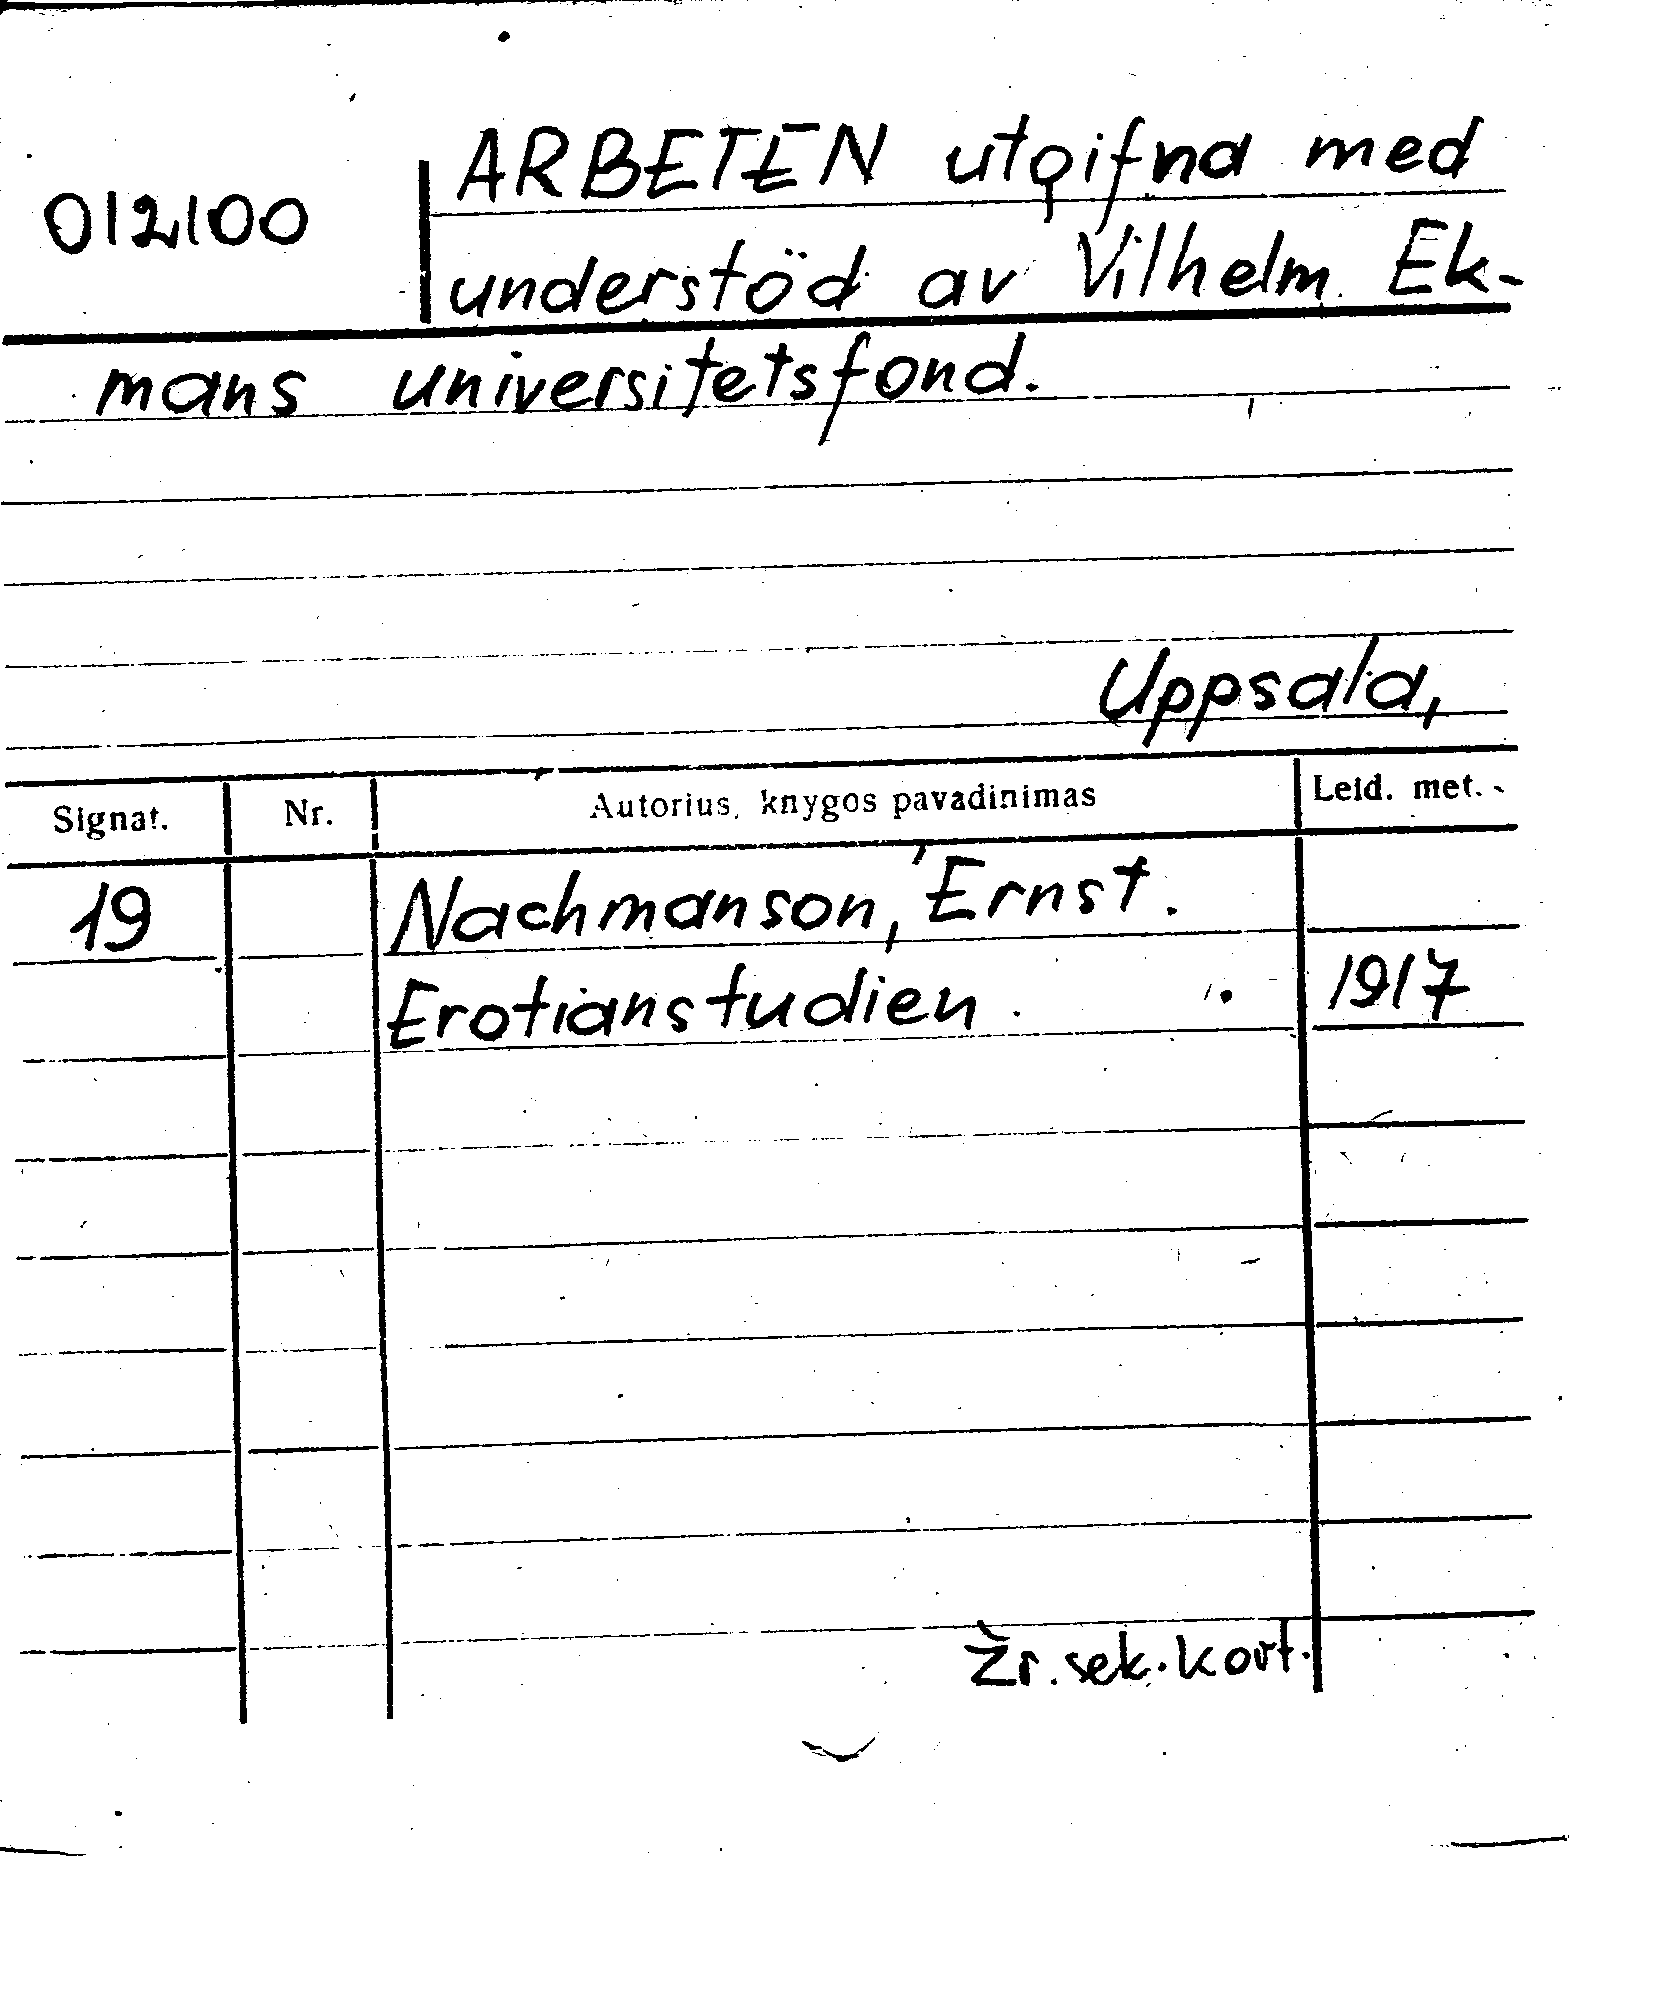 012100
ARBETEN utgifna med
understöd av Vilhelm Ek-
mans universitetsfond.
Uppsala,
Signat. Nr. Autorius, knygos pavadinimas Leid. met.
19 Nachmanson, Ernst.
Erotianstudien. 1917
Žr. sek. kort.